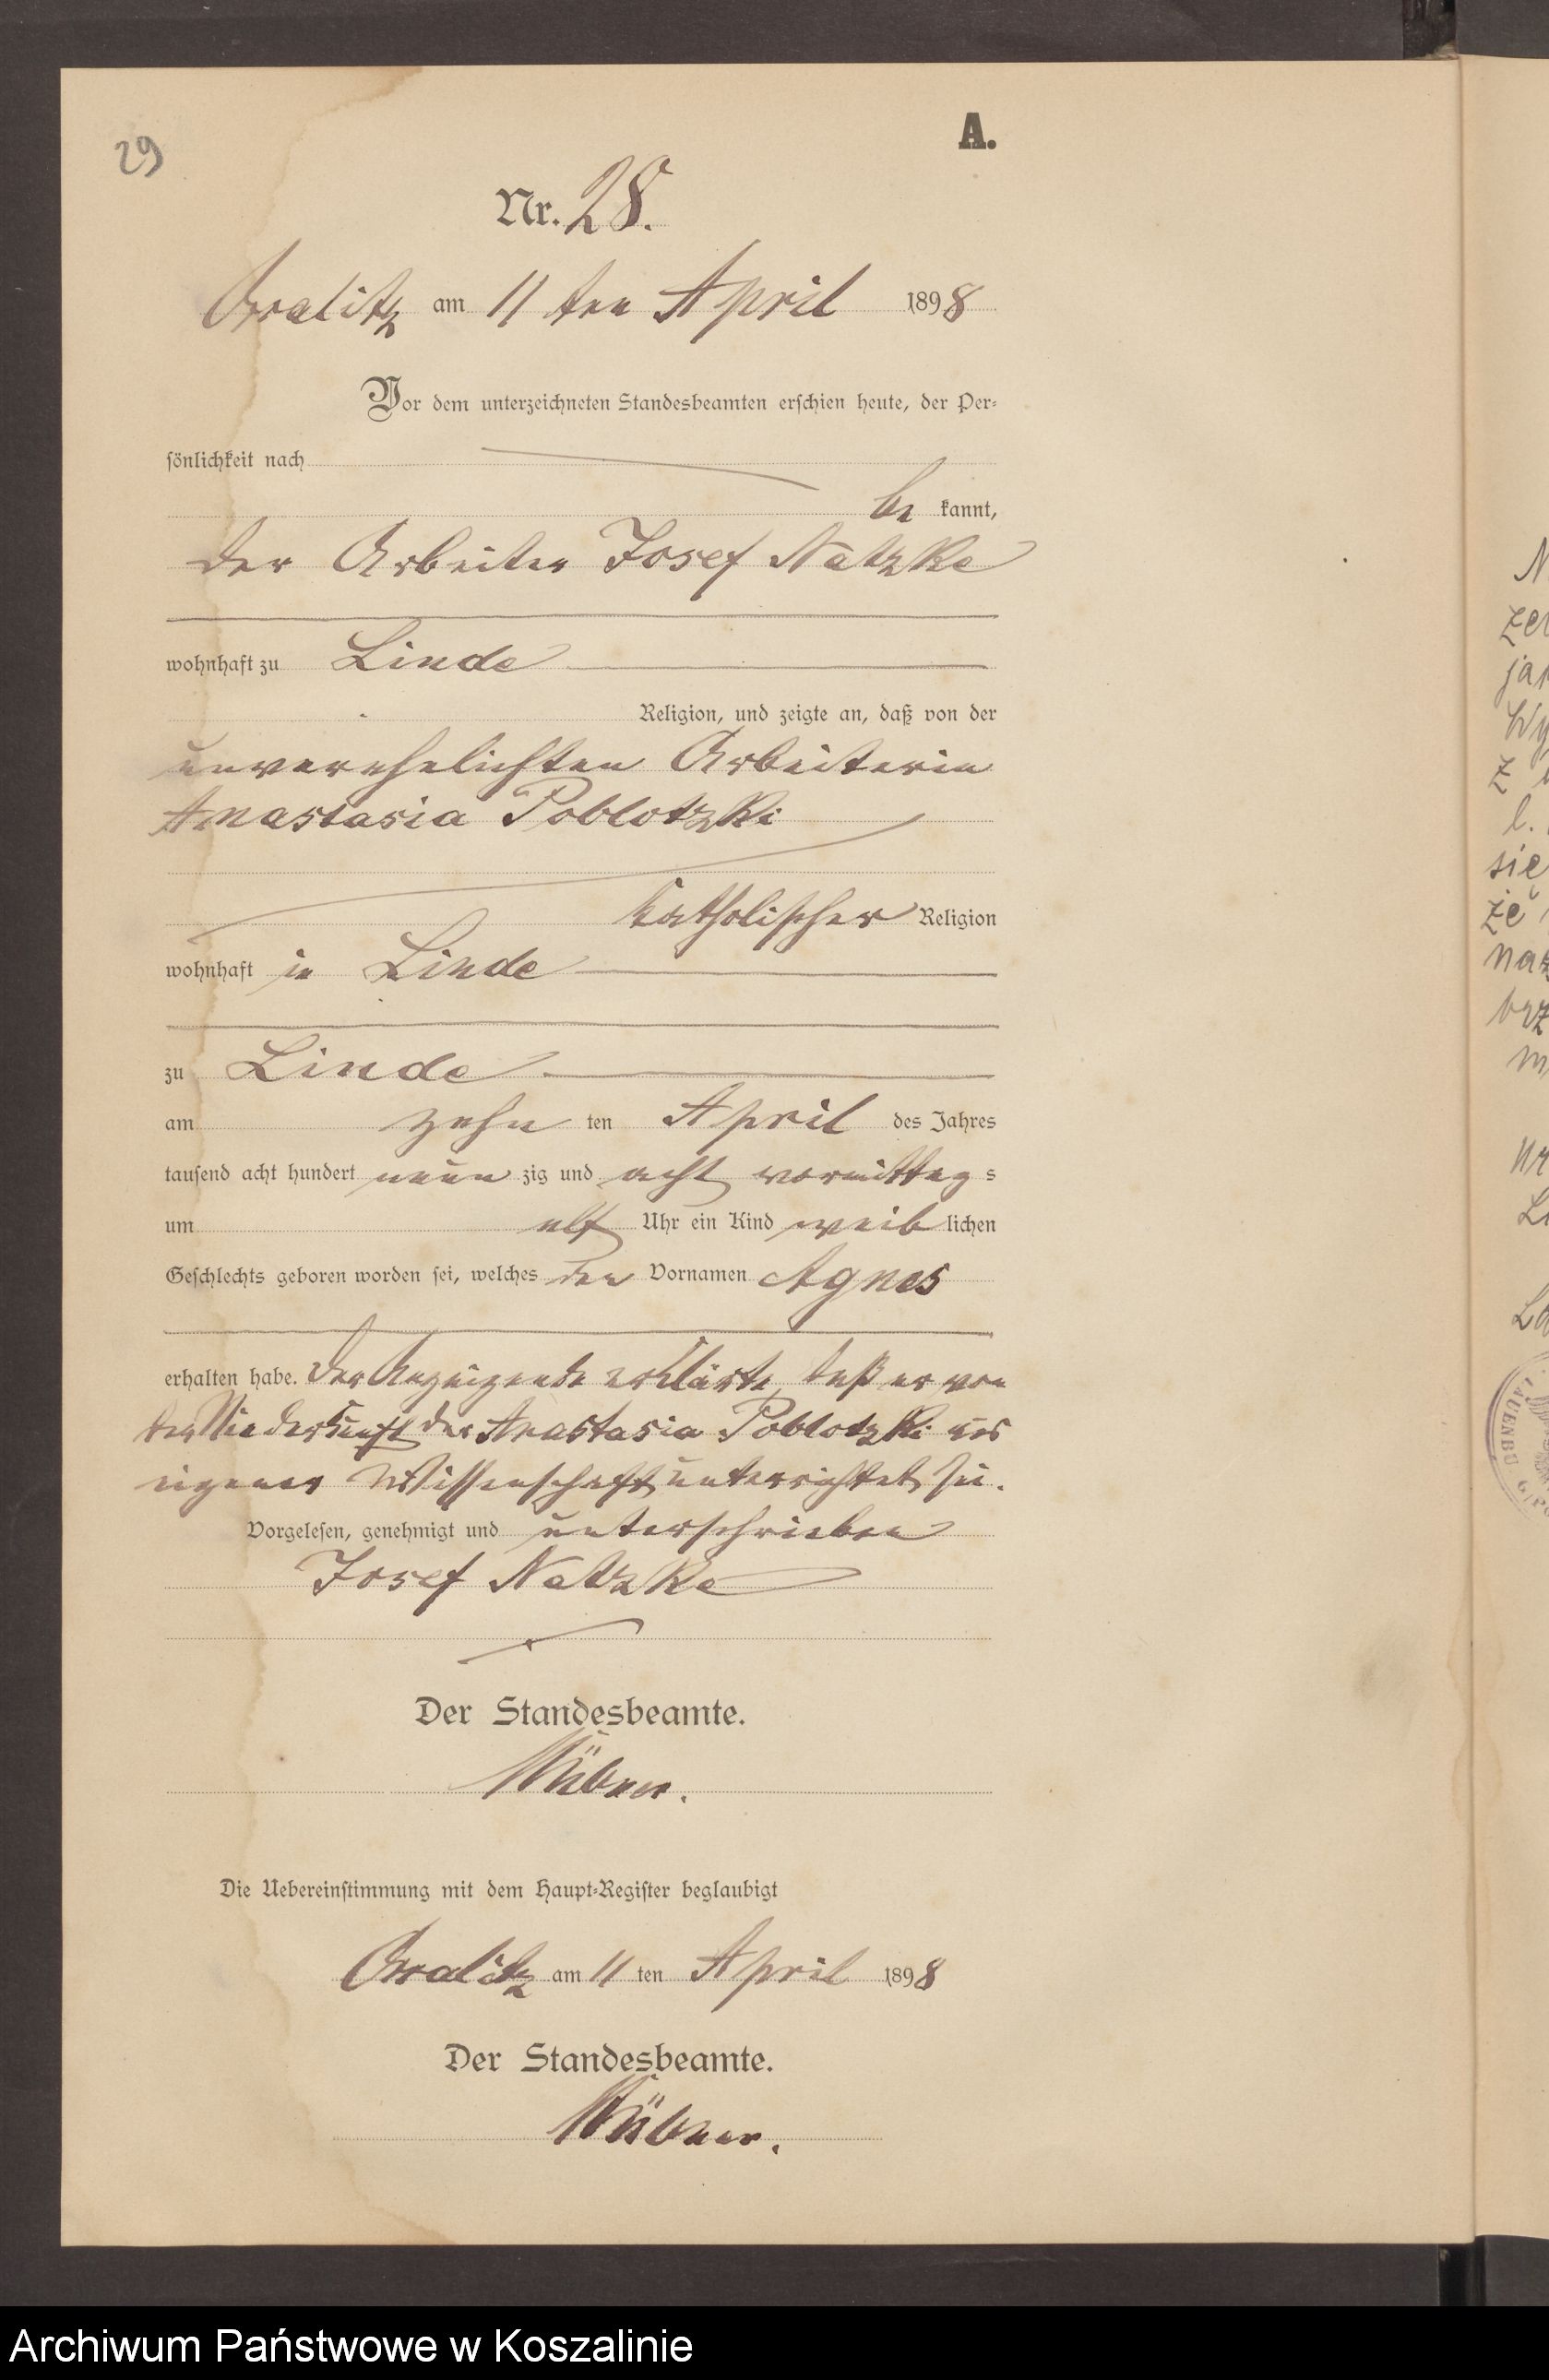 29
A.
Nr. 28.
am 11 ten April 1898
Vor dem unterzeichneten Standesbeamten erschien heute, der Per-
sönlichkeit nach
be kannt,
der Arbeiter Josef Natzke
wohnhaft zu Linde
Religion, und zeigte an, daß von der
unverehelichten Arbeiterin
Anastasia Poblotzki
katholischer Religion
wohnhaft in Linde
zu Linde
am zehn ten April des Jahres
tausend acht hundert neun zig und acht vormittag s
um elf Uhr ein Kind weib lichen
Geschlechts geboren worden sei, welches den Vornamen Agnes
erhalten habe. Der Anzeigende erklärte, daß er von
der Niederkunft der Anastasia Poblotzki aus
eigener Wissenschaft unterrichtet sei.
Vorgelesen, genehmigt und unterschrieben
Josef Natzke
Der Standesbeamte.
Die Uebereinstimmung mit dem Haupt-Register beglaubigt
am 11 ten April 1898
Der Standesbeamte.
N
zer
jar
Wy
z
l.
się
że
naz
brz
m
Nr
L
LAUENBU
Archiwum Państwowe w Koszalinie